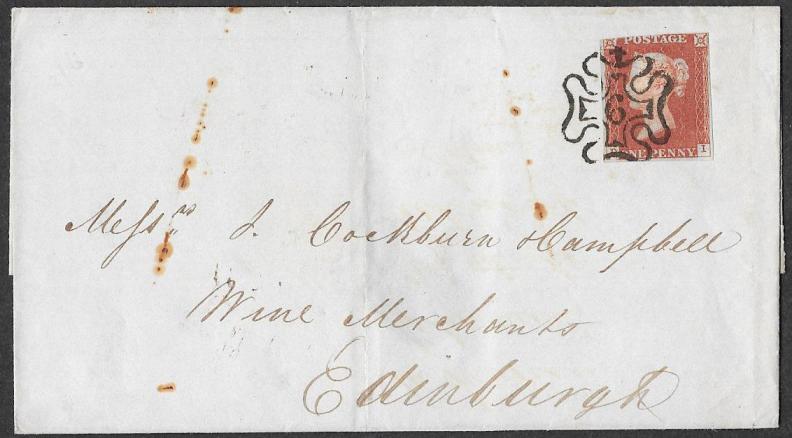 POSTAGE
ONE PENNY. I
Mess.rs J. Cockburn & Campbell
Wine Merchants
Edinburgh